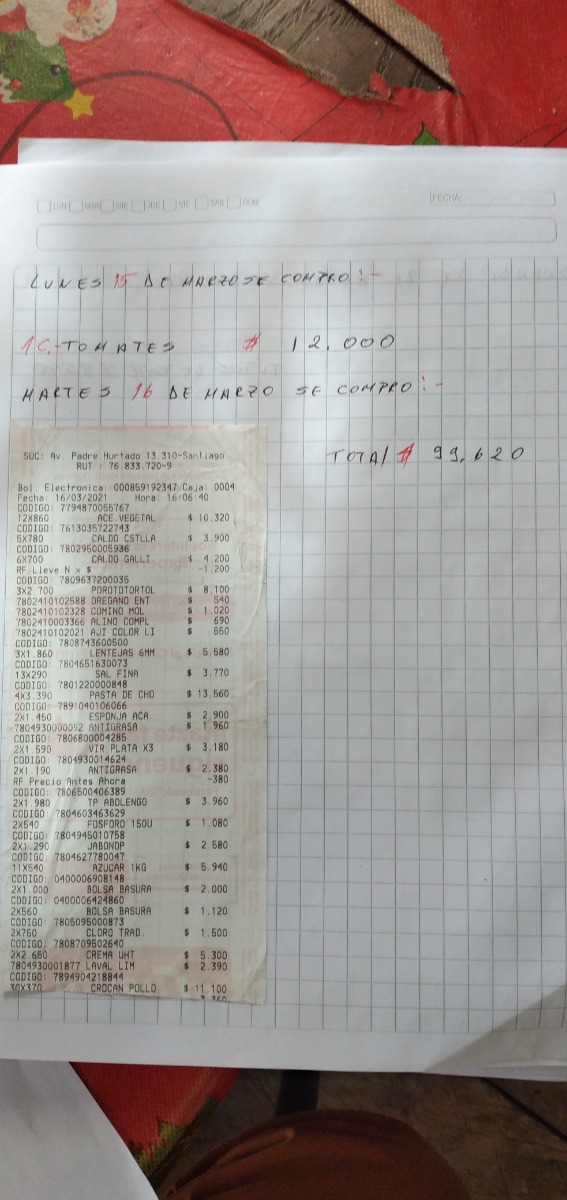 LUN MAR MIE JUE VIE SAB DOM FECHA:
LUNES 15 DE MARZO SE COMPRO:-
1C,-TOMATES $ 12.000
MARTES 16 DE MARZO SE COMPRO:-
TOTAL $ 99,620
SUC: Av. Padre Hurtado 13.310-Santiago
RUT : 76.833.720-9
Bol. Electronica: 000859192347 Caja: 0004
Fecha: 16/03/2021 Hora: 16:06:40
CODIGO: 7794870055767
12X860 ACE.VEGETAL $ 10.320
CODIGO: 7613035722743
5X780 CALDO CSTLLA $ 3.900
CODIGO: 7802950005936
6X700 CALDO GALLI. $ 4.200
RF Lleve N x $ -1.200
CODIGO: 7809637200035
3X2.700 POROTOTORTOL $ 8.100
7802410102588 OREGANO ENT $ 540
7802410102328 COMINO MOL $ 1.020
7802410003366 ALINO COMPL $ 690
7802410102021 AJI COLOR LI $ 550
CODIGO: 7808743600500
3X1.860 LENTEJAS 6MM $ 5.580
CODIGO: 7804651630073
13X290 SAL FINA $ 3.770
CODIGO: 7801220000848
4X3.390 PASTA DE CHO $ 13.560
CODIGO: 7891040106066
2X1.450 ESPONJA ACA. $ 2.900
7804930000052 ANTIGRASA $ 1.960
CODIGO: 7806800004285
2X1.590 VIR PLATA X3 $ 3.180
CODIGO: 7804930014624
2X1.190 ANTIGRASA $ 2.380
RF Precio Antes Ahora -380
CODIGO: 7806500406389
2X1.980 TP ABOLENGO $ 3.960
CODIGO: 7804603463629
2X540 FOSFORO 150U $ 1.080
CODIGO: 7804945010758
2X1.290 JABONDP $ 2.580
CODIGO: 7804627780047
11X540 AZUCAR 1KG $ 5.940
CODIGO: 0400006908148
2X1.000 BOLSA BASURA $ 2.000
CODIGO: 0400006424860
2X560 BOLSA BASURA $ 1.120
CODIGO: 7805095000873
2X750 CLORO TRAD. $ 1.500
CODIGO: 7808709502640
2X2.650 CREMA UHT $ 5.300
7804930001877 LAVAL LIM $ 2.390
CODIGO: 7894904218844
30X370 CROCAN POLLO $ 11.100